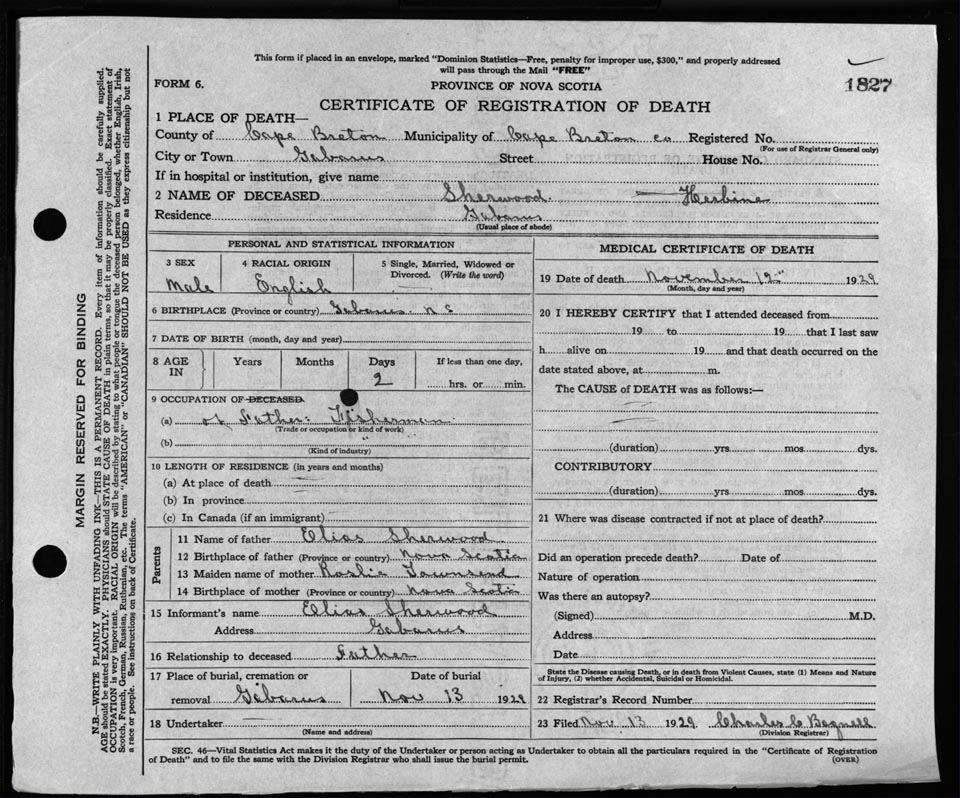 This form if placed in an envelope, marked "Dominion Statistics—Free, penalty for improper use, $300," and properly addressed
will pass through the Mail "FREE"
1827
FORM 6.
PROVINCE OF NOVA SCOTIA
CERTIFICATE OF REGISTRATION OF DEATH
1 PLACE OF DEATH—
County of Cape Breton Municipality of Cape Breton co Registered No.
(For use of Registrar General only)
City or Town Gabarus Street House No.
If in hospital or institution, give name
2 NAME OF DECEASED Sherwood — Herbine
Residence Gabarus
(Usual place of abode)
PERSONAL AND STATISTICAL INFORMATION
3 SEX 4 RACIAL ORIGIN 5 Single, Married, Widowed or
Divorced. (Write the word)
Male English
6 BIRTHPLACE (Province or country) Gabarus. N S
7 DATE OF BIRTH (month, day and year)
8 AGE IN Years Months Days If less than one day,
2 hrs. or min.
9 OCCUPATION OF DECEASED
(a) of Father: Fisherman
(Trade or occupation or kind of work)
(b) "
(Kind of industry)
10 LENGTH OF RESIDENCE (in years and months)
(a) At place of death
(b) In province
(c) In Canada (if an immigrant)
Parents
11 Name of father Elias Sherwood
12 Birthplace of father (Province or country) Nova Scotia
13 Maiden name of mother Roslie Townsend
14 Birthplace of mother (Province or country) Nova Scotia
15 Informant's name Elias Sherwood
Address Gabarus
16 Relationship to deceased Father
17 Place of burial, cremation or Date of burial
removal Gabarus Nov 13 1929
18 Undertaker —
(Name and address)
MEDICAL CERTIFICATE OF DEATH
19 Date of death November 12" 1929
(Month, day and year)
20 I HEREBY CERTIFY that I attended deceased from
19 to 19 that I last saw
h alive on 19 and that death occurred on the
date stated above, at m.
The CAUSE of DEATH was as follows:—
(duration) yrs mos dys.
CONTRIBUTORY
(duration) yrs mos dys.
21 Where was disease contracted if not at place of death?
Did an operation precede death? Date of
Nature of operation
Was there an autopsy?
(Signed) M.D.
Address
Date
State the Disease causing Death, or in death from Violent Causes, state (1) Means and Nature
of Injury, (2) whether Accidental, Suicidal or Homicidal.
22 Registrar's Record Number
23 Filed Nov 13 1929 Charles C Bagnell
(Division Registrar)
SEC. 46—Vital Statistics Act makes it the duty of the Undertaker or person acting as Undertaker to obtain all the particulars required in the "Certificate of Registration
of Death" and to file the same with the Division Registrar who shall issue the burial permit. (OVER)
MARGIN RESERVED FOR BINDING
N.B.—WRITE PLAINLY WITH UNFADING INK—THIS IS A PERMANENT RECORD. Every item of information should be carefully supplied.
AGE should be stated EXACTLY. PHYSICIANS should STATE CAUSE OF DEATH in plain terms, so that it may be properly classified. Exact statement of
OCCUPATION is very important. RACIAL ORIGIN will be described by stating to what people or tongue the deceased person belonged, whether English, Irish,
Scotch, French, German, Russian, Ruthenian, etc. The terms "AMERICAN" or "CANADIAN" SHOULD NOT BE USED as they express citizenship but not
a race or people. See instructions on back of Certificate.